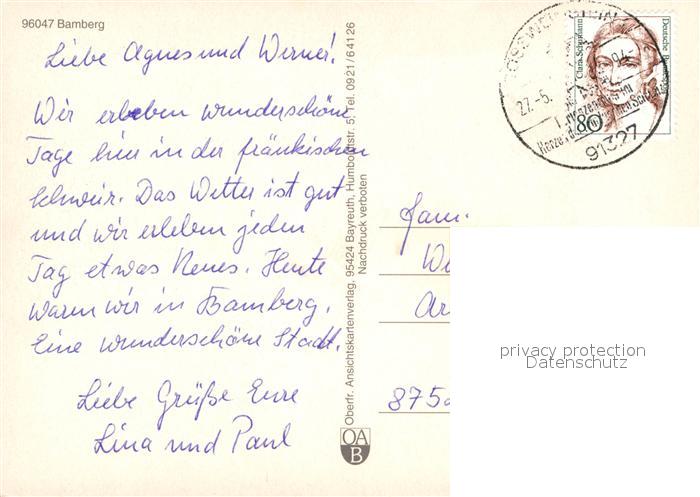 96047 Bamberg
Liebe Agnes und Werner!
Wir erleben wunderschöne
Tage hier in der fränkischen
Schweiz. Das Wetter ist gut
und wir erleben jeden
Tag etwas Neues. Heute
waren wir in Bamberg.
Eine wunderschöne Stadt.
Liebe Grüße Eure
Lina und Paul
Oberfr. Ansichtskartenverlag, 95424 Bayreuth, Humboldtstr. 5, Tel. 0921/64126
Nachdruck verboten
OA
B
Clara Schumann
Deutsche Bundespost
80
27.-5.
91327
Fam.
We
Ar
875
privacy protection
Datenschutz